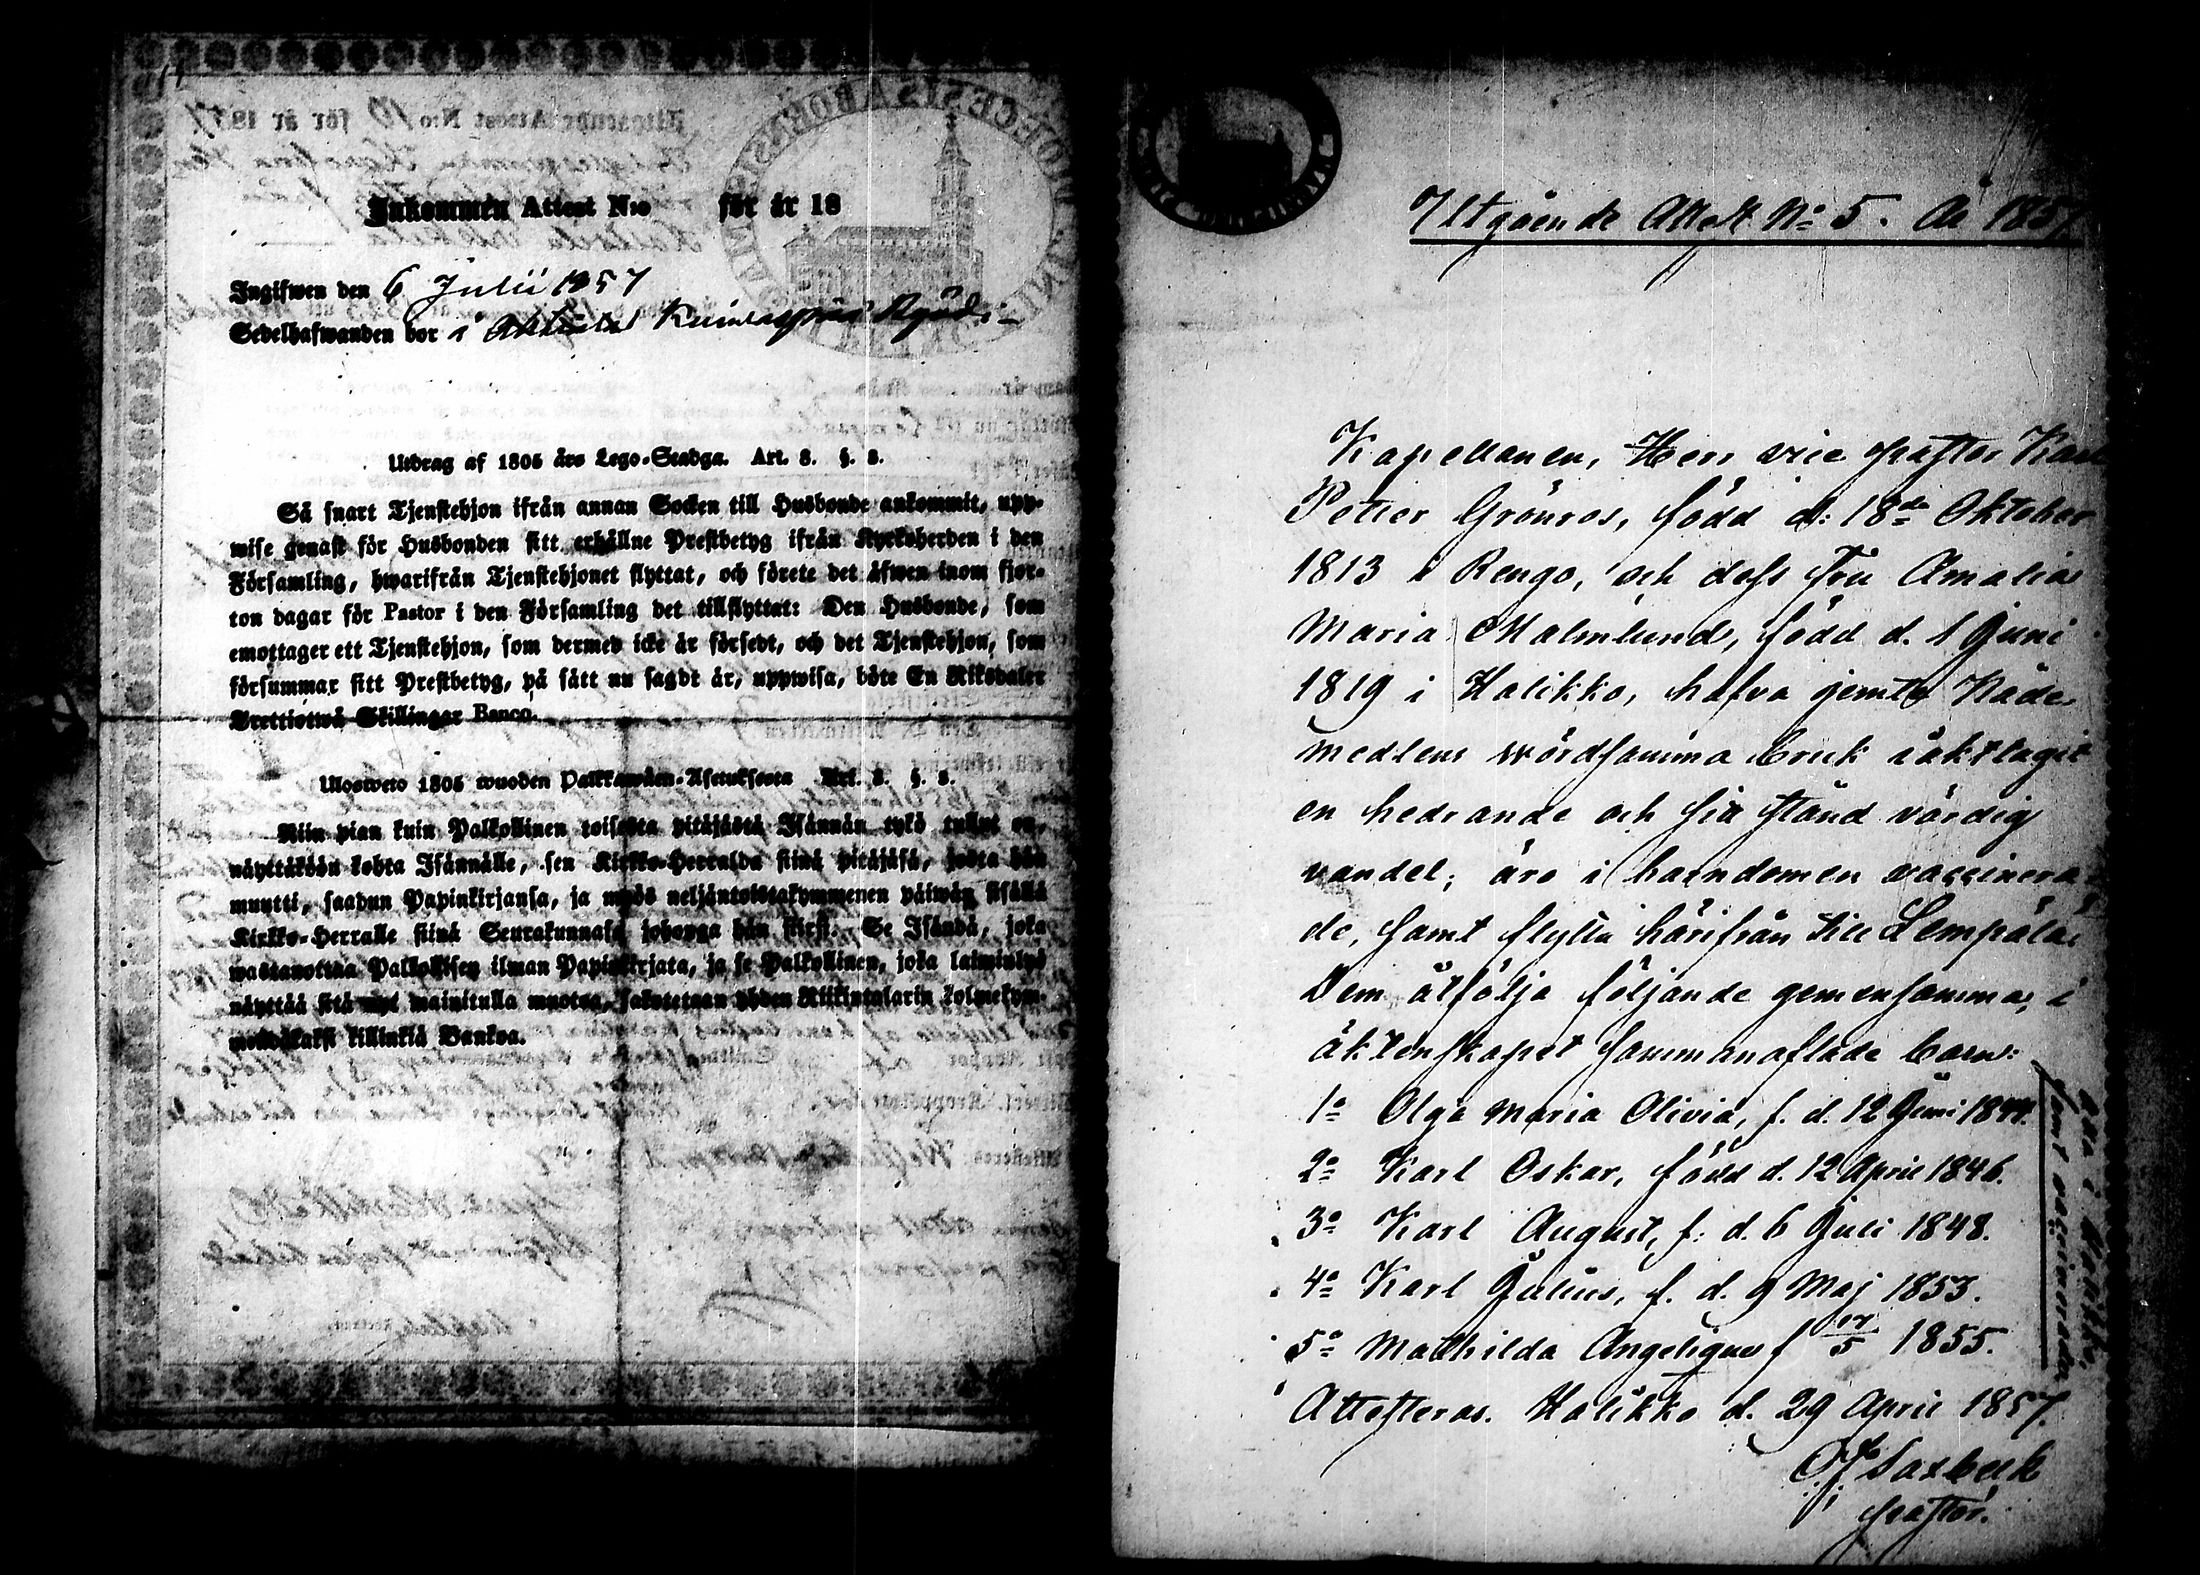 Inkommen Attest N:o för år 18
Ingifwen den 6 Julii 1857
Sedelhafwanden bor i
Utdrag af 1805 års Lego-Stadga. Art. 8. §. 8.
Så snart Tjenstehjon ifrån annan Socken till Husbonde ankommit, upp-
wise genast för Husbonden sitt erhållne Prestbetyg ifrån Kyrkoherden i den
Församling, hwarifrån Tjenstehjonet flyttat, och förete det äfwen inom fjor-
ton dagar för Pastor i den Församling det tillflyttat: Den Husbonde, som
emottager ett Tjenstehjon, som dermed icke är försedt, och det Tjenstehjon, som
försummar sitt Prestbetyg, på sätt nu sagdt är, uppwisa, böte En Riksdaler
Trettiotwå Skillingar Banco.
Ulosweto 1805 wuoden Palkkawäen-Asetuksesta Art. 8. §. 8.
Niin pian kuin Palkollinen toisesta pitäjästä Isännän tykö tullut on,
näyttäkään kohta Isännälle, sen Kirkko-Herralda siinä pitäjäsä, josta hän
muutti, saadun Papinkirjansa, ja myös neljäntoistakymmenen päiwän sisällä
Kirkko-Herralle siinä Seurakunnasa johonga hän siirsi. Se Isändä, joka
wastanottaa Palkollisen ilman Papinkirjata, ja se Palkollinen, joka laiminlyö
näyttää sitä nyt mainitulla muotoa, sakotetaan yhden Riikintalarin kolmekym-
mendäkaksi killinkiä Bankoa.
Utgående Attest No 5. År 1857
Kapellanen, Herr vice Pastor Karl
Petter Grönros, född d: 18de Oktober
1813 i Rengo, och dess Fru Amalia
Maria Malmlund, född d. 1 Juni
1819 i Halikko, hafva jemte Nåde-
medlens wördsamma bruk iakttagit
en hedrande och sin stånd värdig
vandel; äro i barndomen vaccinera-
de, samt flytta härifrån till Lempälä.
Dem åtfölja följande gemensamma, i
äktenskapet sammanaflade barn:
1o Olga Maria Olivia, f. d. 12 Juni 1844.
2o Karl Oskar, född d. 12 April 1846.
3o Karl August, f. d. 6 Juli 1848.
4o Karl Julius, f. d. 9 Maj 1853.
5o Mathilda Angelique f 1855.
samt vaccinerade
Attesteras. Halikko d. 29 April 1857.
Saxbeck
Pastor.